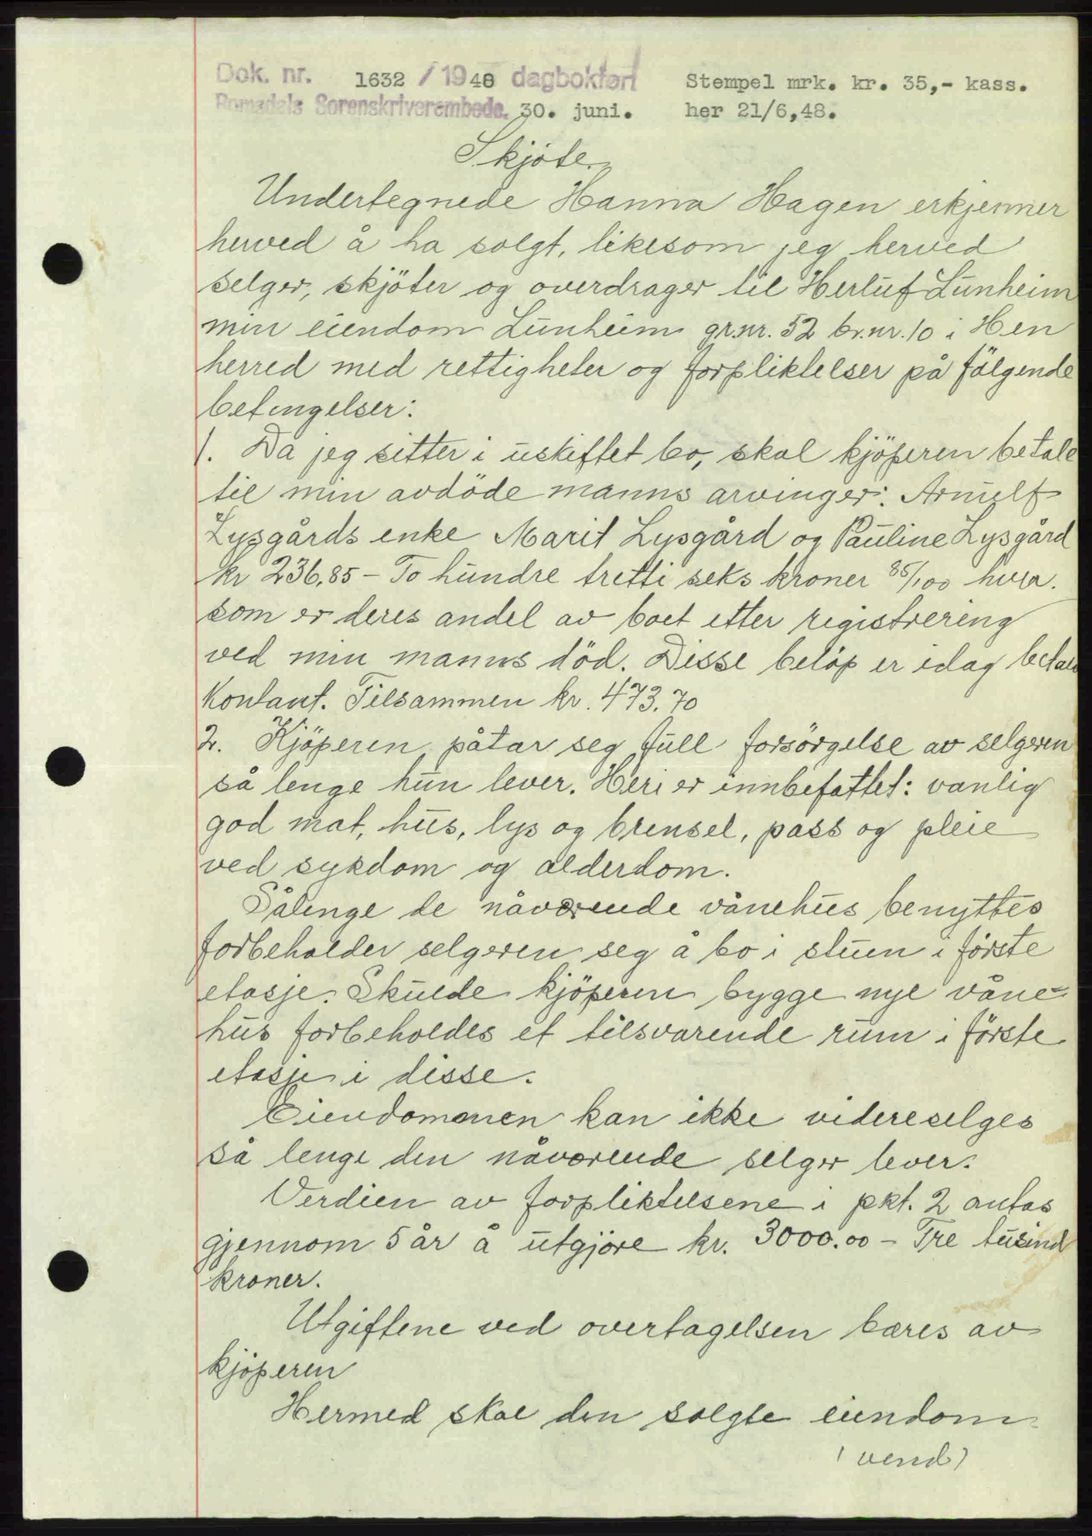 Dok. nr. 1632 / 1948 dagbokført Stempel mrk. kr. 35,- kass.
Romsdals Sorenskriverembede. 30. juni. her 21/6,48.
Skjöte.
Undertegnede Hanna Hagen erkjenner
herved å ha solgt, likesom jeg herved
selger, skjöter og overdrager til Herluf Lunheim
min eiendom Lunheim gr.nr. 52 br.nr. 10 i Hen
herred med rettigheter og forpliktelser på fölgende
betingelser:
1. Da jeg sitter i uskiftet bo, skal kjöperen betale
til min avdöde manns arvinger: Arnulf
Lysgårds enke Marit Lysgård og Pauline Lysgård
kr 236,85 - To hundre tretti seks kroner 85/100 hver.
som er deres andel av boet etter registrering
ved min manns död. Disse belöp er idag betalt
Kontant. Tilsammen kr. 473.70
2. Kjöperen påtar seg full forsörgelse av selgeren
så lenge hun lever. Heri er innbefattet: vanlig
god mat, hus, lys og brensel, pass og pleie
ved sykdom og alderdom.
Sålenge de nåværende vånehus benyttes
forbeholder selgeren seg å bo i stuen i förste
etasje. Skulde kjöperen bygge nye våne-
hus forbeholdes et tilsvarende rum i förste
etasje i disse.
Eiendommen kan ikke videreselges
så lenge den nåværende selger lever.
Verdien av forpliktelsene i pkt. 2 antas
gjennom 5 år å utgjöre kr. 3000.00 - Tre tusind
kroner.
Utgiftene ved overtagelsen bæres av
kjöperen
Hermed skal den solgte eiendom
(vend)